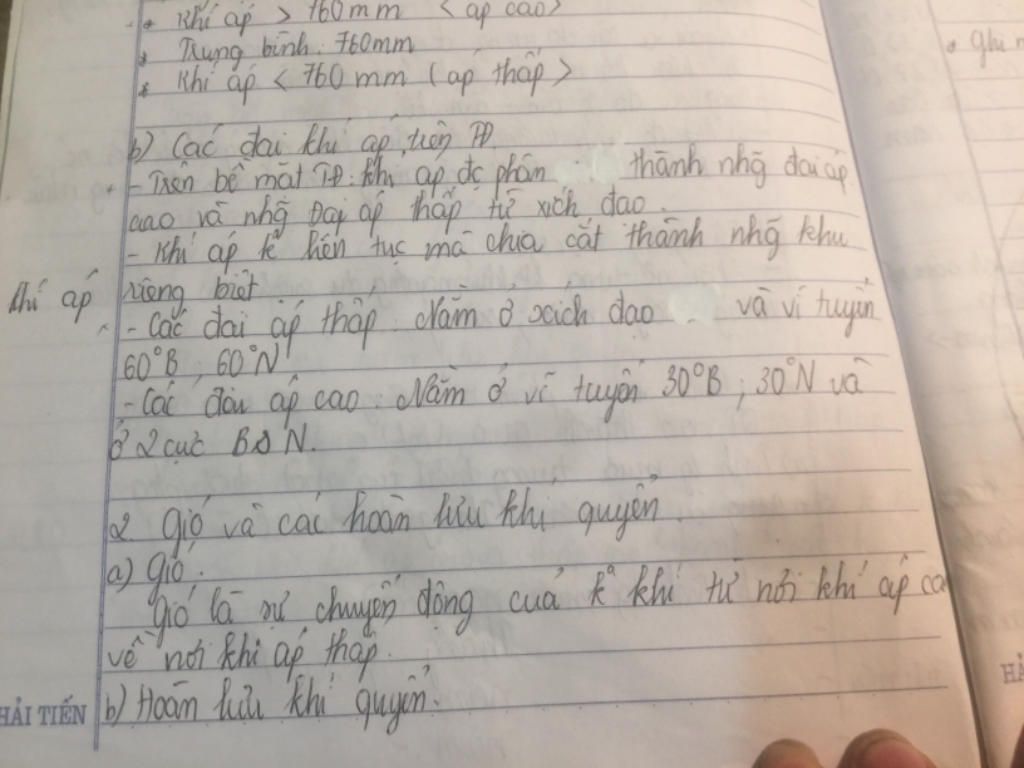 * Khí áp > 760mm < áp cao>
* Trung bình: 760mm
* Khí áp < 760mm (áp thấp>
b) Các đai khí áp trên TĐ.
- Trên bề mặt TĐ: khí áp đc phân thành nhg̃ đai áp
cao và nhg̃ Đai áp thấp từ xích đạo.
- Khí áp k liên tục mà chia cắt thành nhg̃ khu
riêng biệt
khí áp
- Các đai áp thấp: Nằm ở xích đạo và vĩ tuyến
60°B, 60°N
- Các đai áp cao: Nằm ở vĩ tuyến 30°B; 30°N và
ở 2 cực B N.
2. Gió và các hoàn lưu khí quyển
a) Gió.
Gió là sự chuyển động của k khí từ nơi khí áp ca
về nơi khí áp thấp.
b) Hoàn lưu khí quyển.
HẢI TIẾN